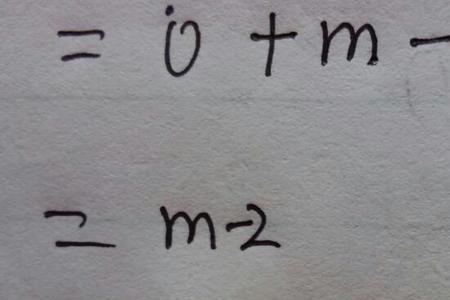 = 0 + m -
= m-2